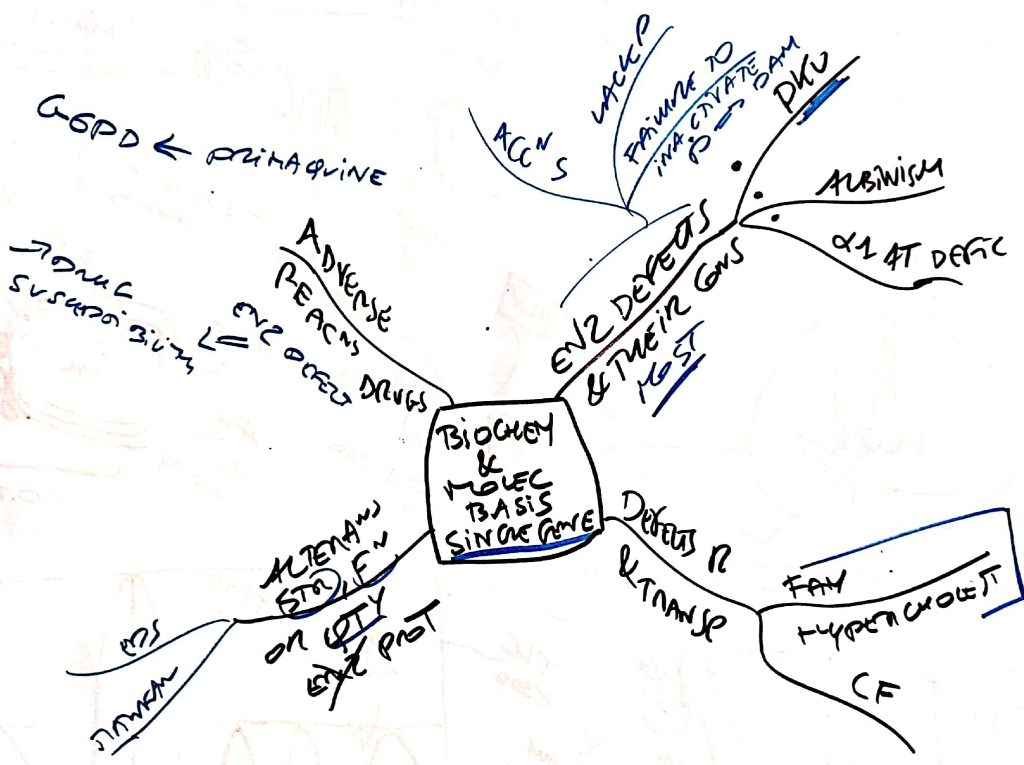 G6PD ← PRIMAQUINE
→ DRUG
SUSCEPTIBILITY
⇐ ENZ DEFECT
ADVERSE
REACNS
DRUGS
ACCNS
LACK P
FAILURE TO
INACTIVATE
P → DAM
PKU
ALBINISM
α1 AT DEFIC
ENZ DEFECTS
& THEIR CONS
MOST
BIOCHEM
&
MOLEC
BASIS
SINGLE GENE
DEFECTS R
& TRANSP
FAM
HYPERCHOLEST
CF
ALTERANS
STR, FN
OR QTY
ENZ PROT
EDS
MARFAN